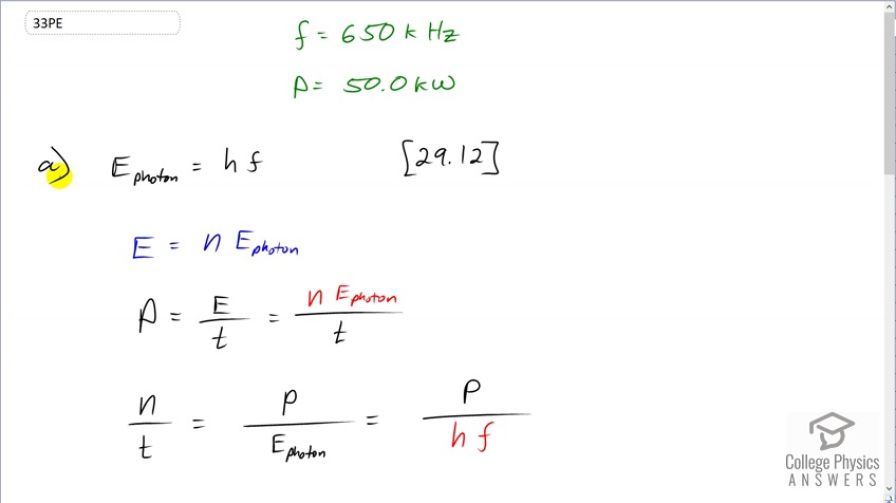 33PE
f = 650 k Hz
P = 50.0 kW
a) E photon = h f [29.12]
E = n E photon
P = E / t = n E photon / t
n / t = P / E photon = P / h f
College Physics
ANSWERS